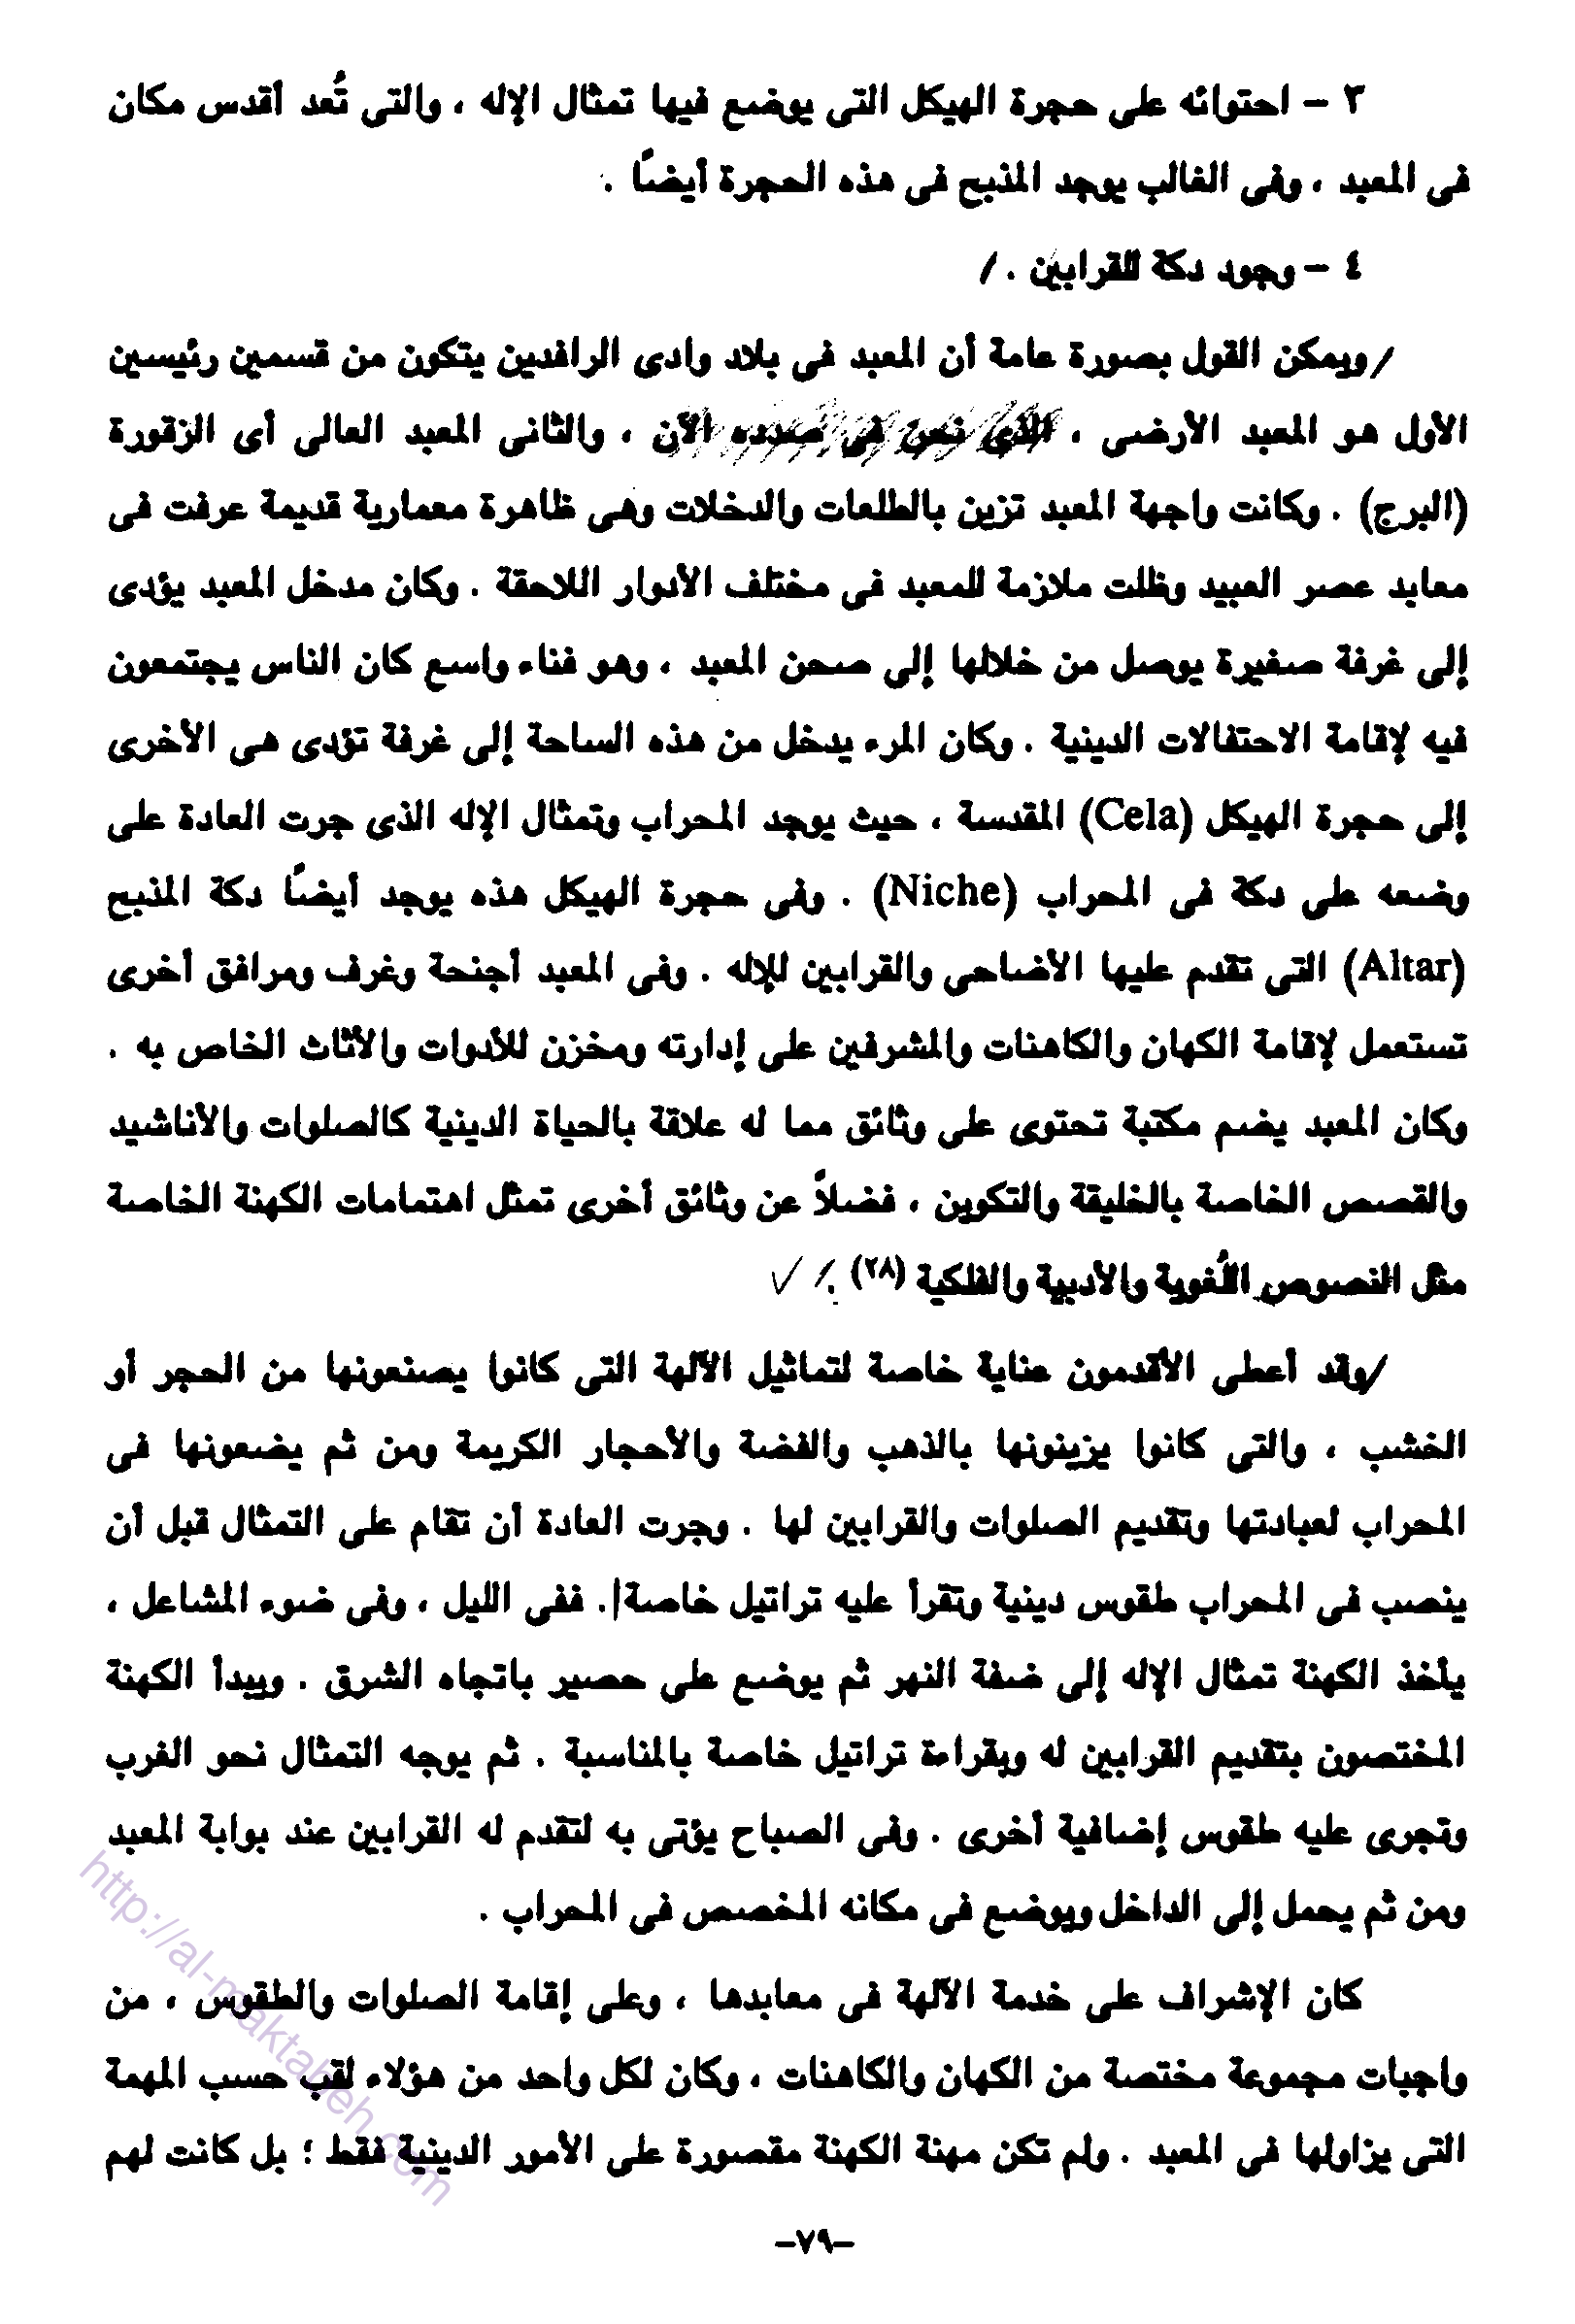 ٣ – احتوائه على حجرة الهيكل التى يوضع فيها تمثال الإله ، والتى تُعد أقدس مكان
فى المعبد ، وفى الغالب يوجد المذبح فى هذه الحجرة أيضاً .
٤ – وجود دكة للقرابين . /
/ويمكن القول بصورة عامة أن المعبد فى بلاد وادى الرافدين يتكون من قسمين رئيسين
الأول هو المعبد الأرضى ، الذى نحن فى صدده الآن ، والثانى المعبد العالى أى الزقورة
(البرج) . وكانت واجهة المعبد تزين بالطلعات والدخلات وهى ظاهرة معمارية قديمة عرفت فى
معابد عصر العبيد وظلت ملازمة للمعبد فى مختلف الأدوار اللاحقة . وكان مدخل المعبد يؤدى
إلى غرفة صغيرة يوصل من خلالها إلى صحن المعبد ، وهو فناء واسع كان الناس يجتمعون
فيه لإقامة الاحتفالات الدينية . وكان المرء يدخل من هذه الساحة إلى غرفة تؤدى هى الأخرى
إلى حجرة الهيكل (Cela) المقدسة ، حيث يوجد المحراب وتمثال الإله الذى جرت العادة على
وضعه على دكة فى المحراب (Niche) . وفى حجرة الهيكل هذه يوجد أيضاً دكة المذبح
(Altar) التى تقدم عليها الأضاحى والقرابين للإله . وفى المعبد أجنحة وغرف ومرافق أخرى
تستعمل لإقامة الكهان والكاهنات والمشرفين على إدارته ومخزن للأدوات والأثاث الخاص به .
وكان المعبد يضم مكتبة تحتوى على وثائق مما له علاقة بالحياة الدينية كالصلوات والأناشيد
والقصص الخاصة بالخليقة والتكوين ، فضلاً عن وثائق أخرى تمثل اهتمامات الكهنة الخاصة
مثل النصوص اللُغوية والأدبية والفلكية (٢٨) . / ✓
/وقد أعطى الأقدمون عناية خاصة لتماثيل الآلهة التى كانوا يصنعونها من الحجر أو
الخشب ، والتى كانوا يزينونها بالذهب والفضة والأحجار الكريمة ومن ثم يضعونها فى
المحراب لعبادتها وتقديم الصلوات والقرابين لها . وجرت العادة أن تقام على التمثال قبل أن
ينصب فى المحراب طقوس دينية وتقرأ عليه تراتيل خاصة|. ففى الليل ، وفى ضوء المشاعل ،
يأخذ الكهنة تمثال الإله إلى ضفة النهر ثم يوضع على حصير باتجاه الشرق . ويبدأ الكهنة
المختصون بتقديم القرابين له وبقراءة تراتيل خاصة بالمناسبة . ثم يوجه التمثال نحو الغرب
وتجرى عليه طقوس إضافية أخرى . وفى الصباح يؤتى به لتقدم له القرابين عند بوابة المعبد
ومن ثم يحمل إلى الداخل ويوضع فى مكانه المخصص فى المحراب .
كان الإشراف على خدمة الآلهة فى معابدها ، وعلى إقامة الصلوات والطقوس ، من
واجبات مجموعة مختصة من الكهان والكاهنات ، وكان لكل واحد من هؤلاء لقب حسب المهمة
التى يزاولها فى المعبد . ولم تكن مهنة الكهنة مقصورة على الأمور الدينية فقط ؛ بل كانت لهم
–٧٩–
http://al-maktabeh.com